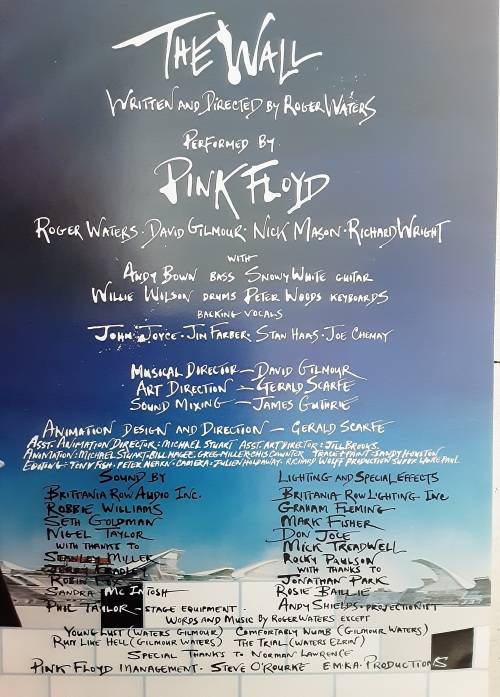 THE WALL
WRITTEN AND DIRECTED BY ROGER WATERS
PERFORMED BY
PINK FLOYD
ROGER WATERS · DAVID GILMOUR · NICK MASON · RICHARD WRIGHT
WITH
ANDY BOWN BASS SNOWY WHITE GUITAR
WILLIE WILSON DRUMS PETER WOODS KEYBOARDS
BACKING VOCALS
JOHN JOYCE · JIM FARBER · STAN HAAS · JOE CHEMAY
MUSICAL DIRECTOR — DAVID GILMOUR
ART DIRECTION — GERALD SCARFE
SOUND MIXING — JAMES GUTHRIE
ANIMATION DESIGN AND DIRECTION — GERALD SCARFE
ASST. ANIMATION DIRECTOR: MICHAEL STUART ASST. ART DIRECTOR: JILL BROOKS.
ANIMATION: MICHAEL STUART · BILL HAGEE · GREG MILLER · CHIS COUNTER TRACE + PAINT · SANDY HOUSTON
EDITING: TONY FISH · PETER HEARN · CAMERA: JULIEN HOLDAWAY · RICHARD WOLFF PRODUCTION SUPER LAURE PAUL
SOUND BY
BRITTANIA ROW AUDIO INC.
ROBBIE WILLIAMS
SETH GOLDMAN
NIGEL TAYLOR
WITH THANKS TO
STANLEY MILLER
ROBIN
SANDRA MCINTOSH
PHIL TAYLOR — STAGE EQUIPMENT.
LIGHTING AND SPECIAL EFFECTS
BRITTANIA ROW LIGHTING INC
GRAHAM FLEMING
MARK FISHER
DON JOLE
MICK TREADWELL
ROCKY PAULSON
WITH THANKS TO
JONATHAN PARK
ROSIE BAILLIE
ANDY SHIELDS · PROJECTIONIST
WORDS AND MUSIC BY ROGER WATERS EXCEPT
YOUNG LUST (WATERS GILMOUR) COMFORTABLY NUMB (GILMOUR WATERS)
RUN LIKE HELL (GILMOUR WATERS) THE TRIAL (WATERS EZRIN)
SPECIAL THANKS TO NORMAN LAWRENCE
PINK FLOYD MANAGEMENT · STEVE O'ROURKE EMKA · PRODUCTIONS